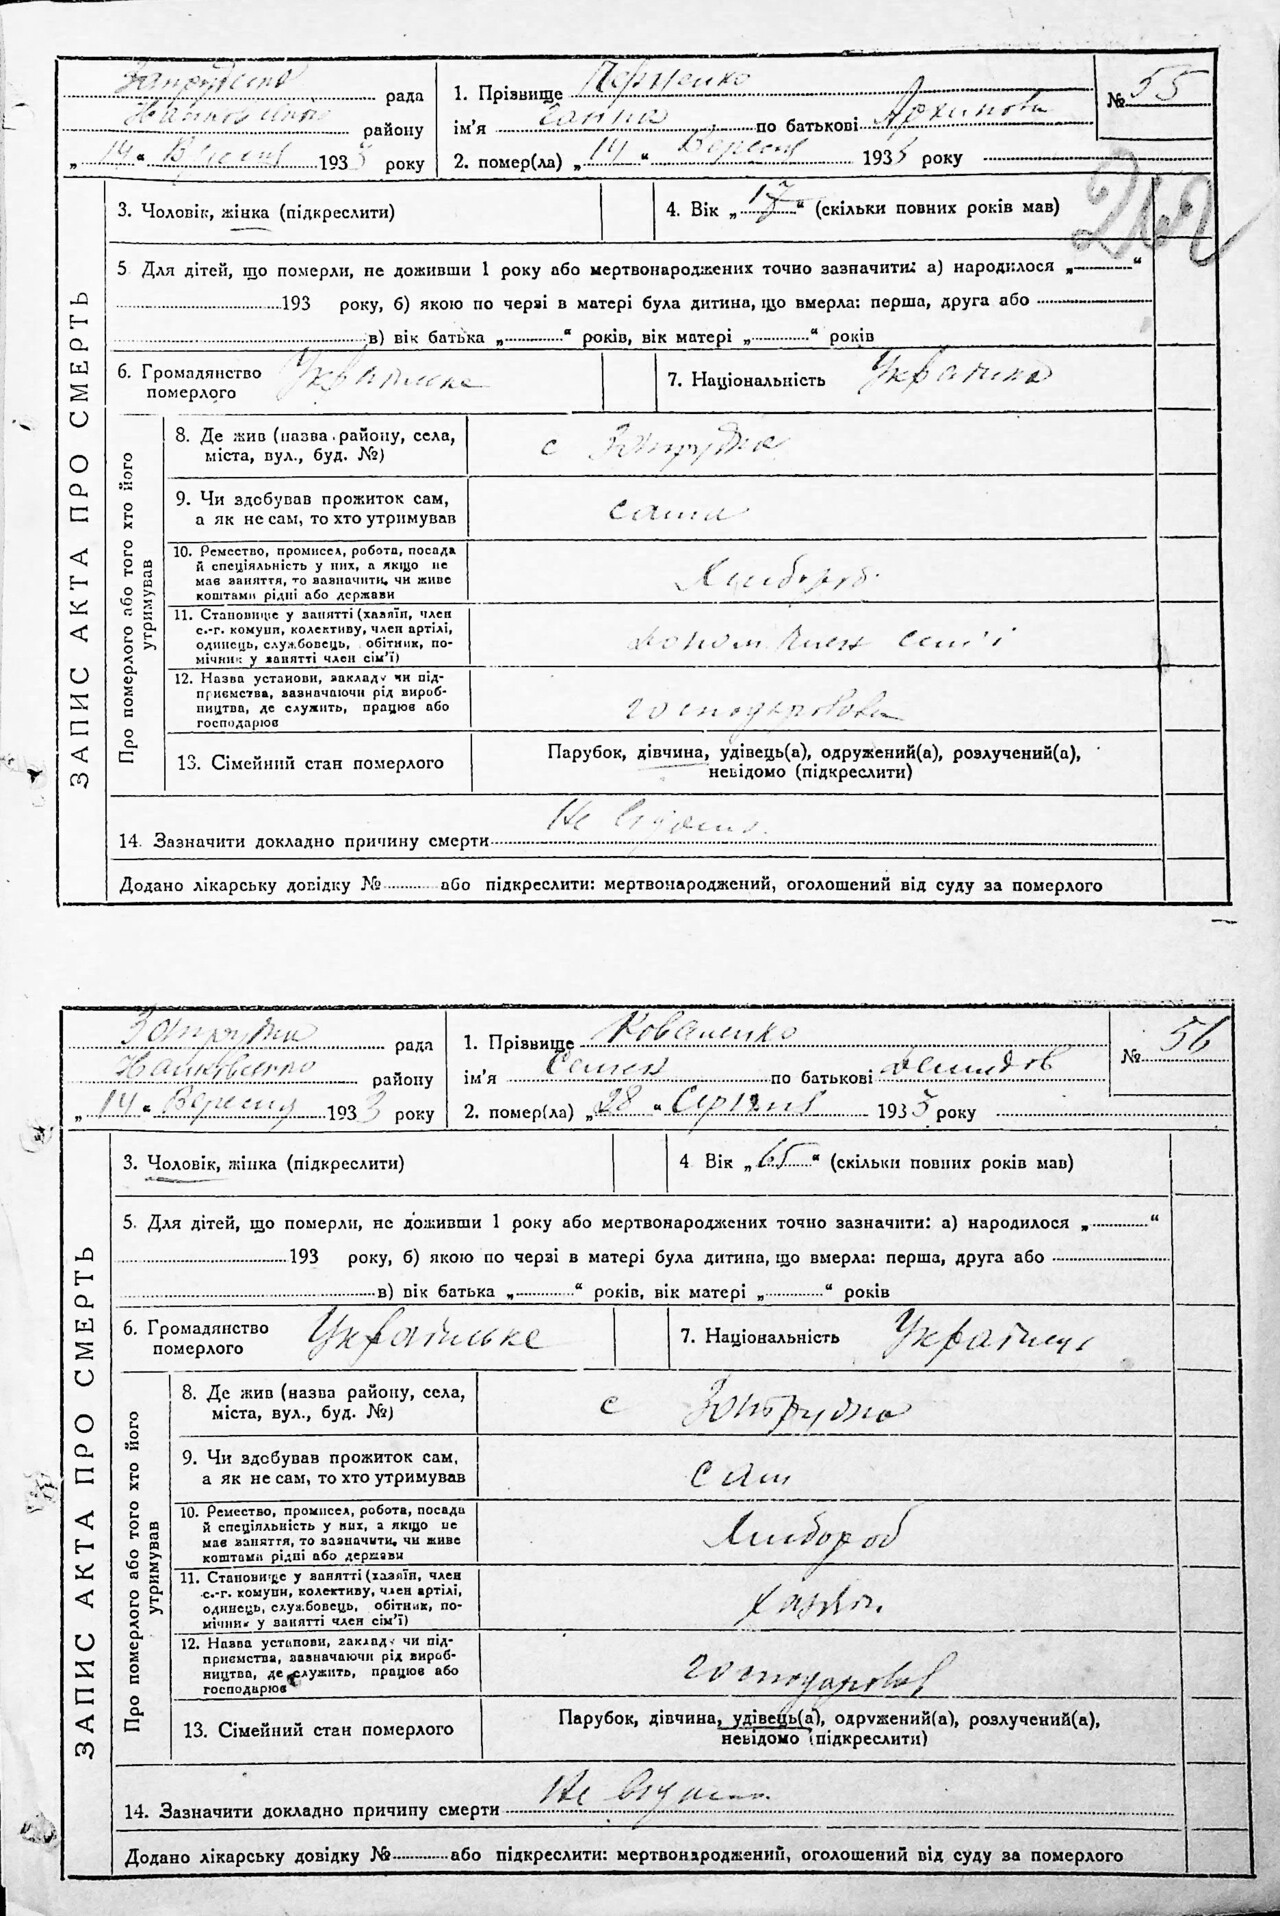 рада
1. Прізвище
№ 55
району
ім'я Ганна по батькові Архипова
„ 14 “ Вересня 1933 року
2. помер(ла) „ 14 “ Вересня 1933 року
3. Чоловік, жінка (підкреслити)
4. Вік „ 17 “ (скільки повних років мав)
212
5. Для дітей, що померли, не доживши 1 року або мертвонароджених точно зазначити: а) народилося „ “
193 року, б) якою по черзі в матері була дитина, що вмерла: перша, друга або
в) вік батька „ “ років, вік матері „ “ років
6. Громадянство
померлого
Українське
7. Національність Українка
ЗАПИС АКТА ПРО СМЕРТЬ
Про померлого або того хто його
утримував
8. Де жив (назва району, села,
міста, вул., буд. №)
с
9. Чи здобував прожиток сам,
а як не сам, то хто утримував
сама
10. Ремество, промисел, робота, посада
й спеціяльність у них, а якщо не
має заняття, то зазначити, чи живе
коштами рідні або держави
Хлібороб
11. Становище у занятті (хазяїн, член
с.-г. комуни, колективу, член артілі,
одинець, службовець, обітник, по-
мічник у занятті член сім'ї)
допом член сем'ї
12. Назва установи, закладу чи під-
приємства, зазначаючи рід вироб-
ництва, де служить, працює або
господарює
господарювала
13. Сімейний стан померлого
Парубок, дівчина, удівець(а), одружений(а), розлучений(а),
невідомо (підкреслити)
14. Зазначити докладно причину смерти Не відомо
Додано лікарську довідку № або підкреслити: мертвонароджений, оголошений від суду за померлого
рада
1. Прізвище Коваленко
№ 56
району
ім'я Семен по батькові Демидов
„ 14 “ Вересня 1933 року
2. помер(ла) „ 28 “ Серпня 1933 року
3. Чоловік, жінка (підкреслити)
4 Вік „ 65 “ (скільки повних років мав)
5. Для дітей, що померли, не доживши 1 року або мертвонароджених точно зазначити: а) народилося „ “
193 року, б) якою по черзі в матері була дитина, що вмерла: перша, друга або
в) вік батька „ “ років, вік матері „ “ років
6. Громадянство
померлого
Українське
7. Національність Українць
ЗАПИС АКТА ПРО СМЕРТЬ
Про померлого або того хто його
утримував
8. Де жив (назва району, села,
міста, вул., буд. №)
с
9. Чи здобував прожиток сам,
а як не сам, то хто утримував
сам
10. Ремество, промисел, робота, посада
й спеціяльність у них, а якщо не
має заняття, то зазначити, чи живе
коштами рідні або держави
Хлібороб
11. Становище у занятті (хазяїн, член
с.-г. комуни, колективу, член артілі,
одинець, службовець, обітник, по-
мічник у занятті член сім'ї)
хазяїн
12. Назва установи, закладу чи під-
приємства, зазначаючи рід вироб-
ництва, де служить, працює або
господарює
господарював
13. Сімейний стан померлого
Парубок, дівчина, удівець(а), одружений(а), розлучений(а),
невідомо (підкреслити)
14. Зазначити докладно причину смерти Не відомо
Додано лікарську довідку № або підкреслити: мертвонароджений, оголошений від суду за померлого